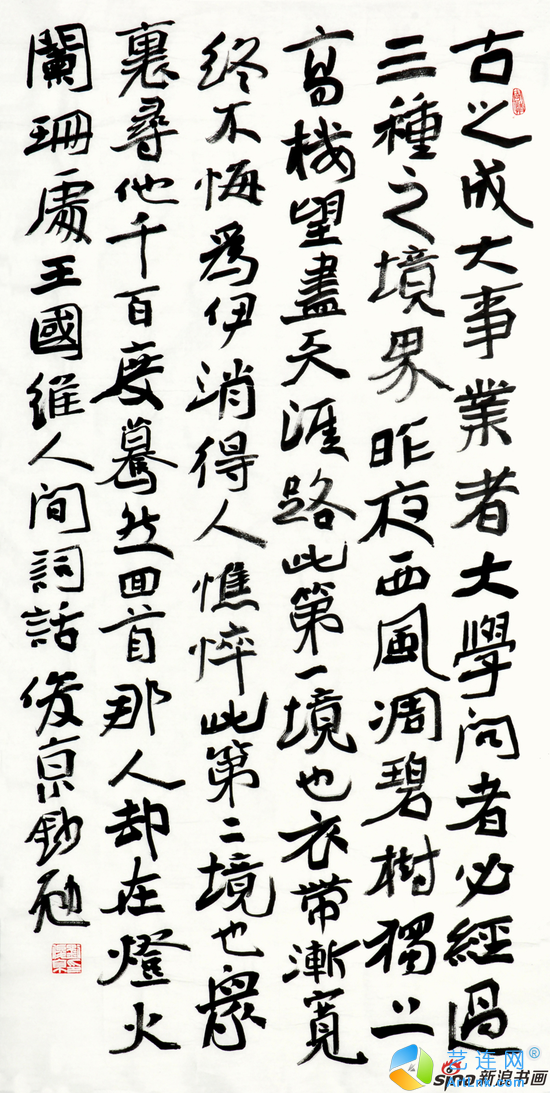 古之成大事業者大學問者必經過
三種之境界昨夜西風凋碧樹獨上
高楼望盡天涯路此第一境也衣帶漸寬
终不悔爲伊消得人憔悴此第二境也眾
裏尋他千百度驀然回首那人却在燈火
闌珊處王國維人间詞話俊京鈔
艺连网®
ArtLnk.com
sina新浪书画